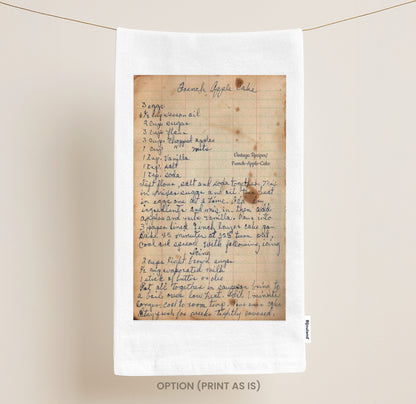 French Apple Cake
3 eggs
1½ cup wesson oil
2 cup sugar
3 cup flour
3 cup chopped apples
1 cup nuts
1 tsp. Vanilla
1 tsp. salt
1 tsp. soda
Vintage Recipes
French Apple Cake
Sift flour, salt and soda together. Mix
in sugar eggs and oil
eggs one at a time.
ingredients and mix in. then add
apples and nuts vanilla. Pour into
3 paper lined 9 inch layer cake pan
Bake 45 minutes at 325
Cool and spread with following icing
Icing
2 cups light brown sugar
½ cup evaporated milk
1 stick of butter or oleo
Put all together in saucepan bring to
a boil over low heat. Boil 1 minute
longer. Cool to room temp.
Stays fresh for weeks tightly covered.
OPTION (PRINT AS IS)